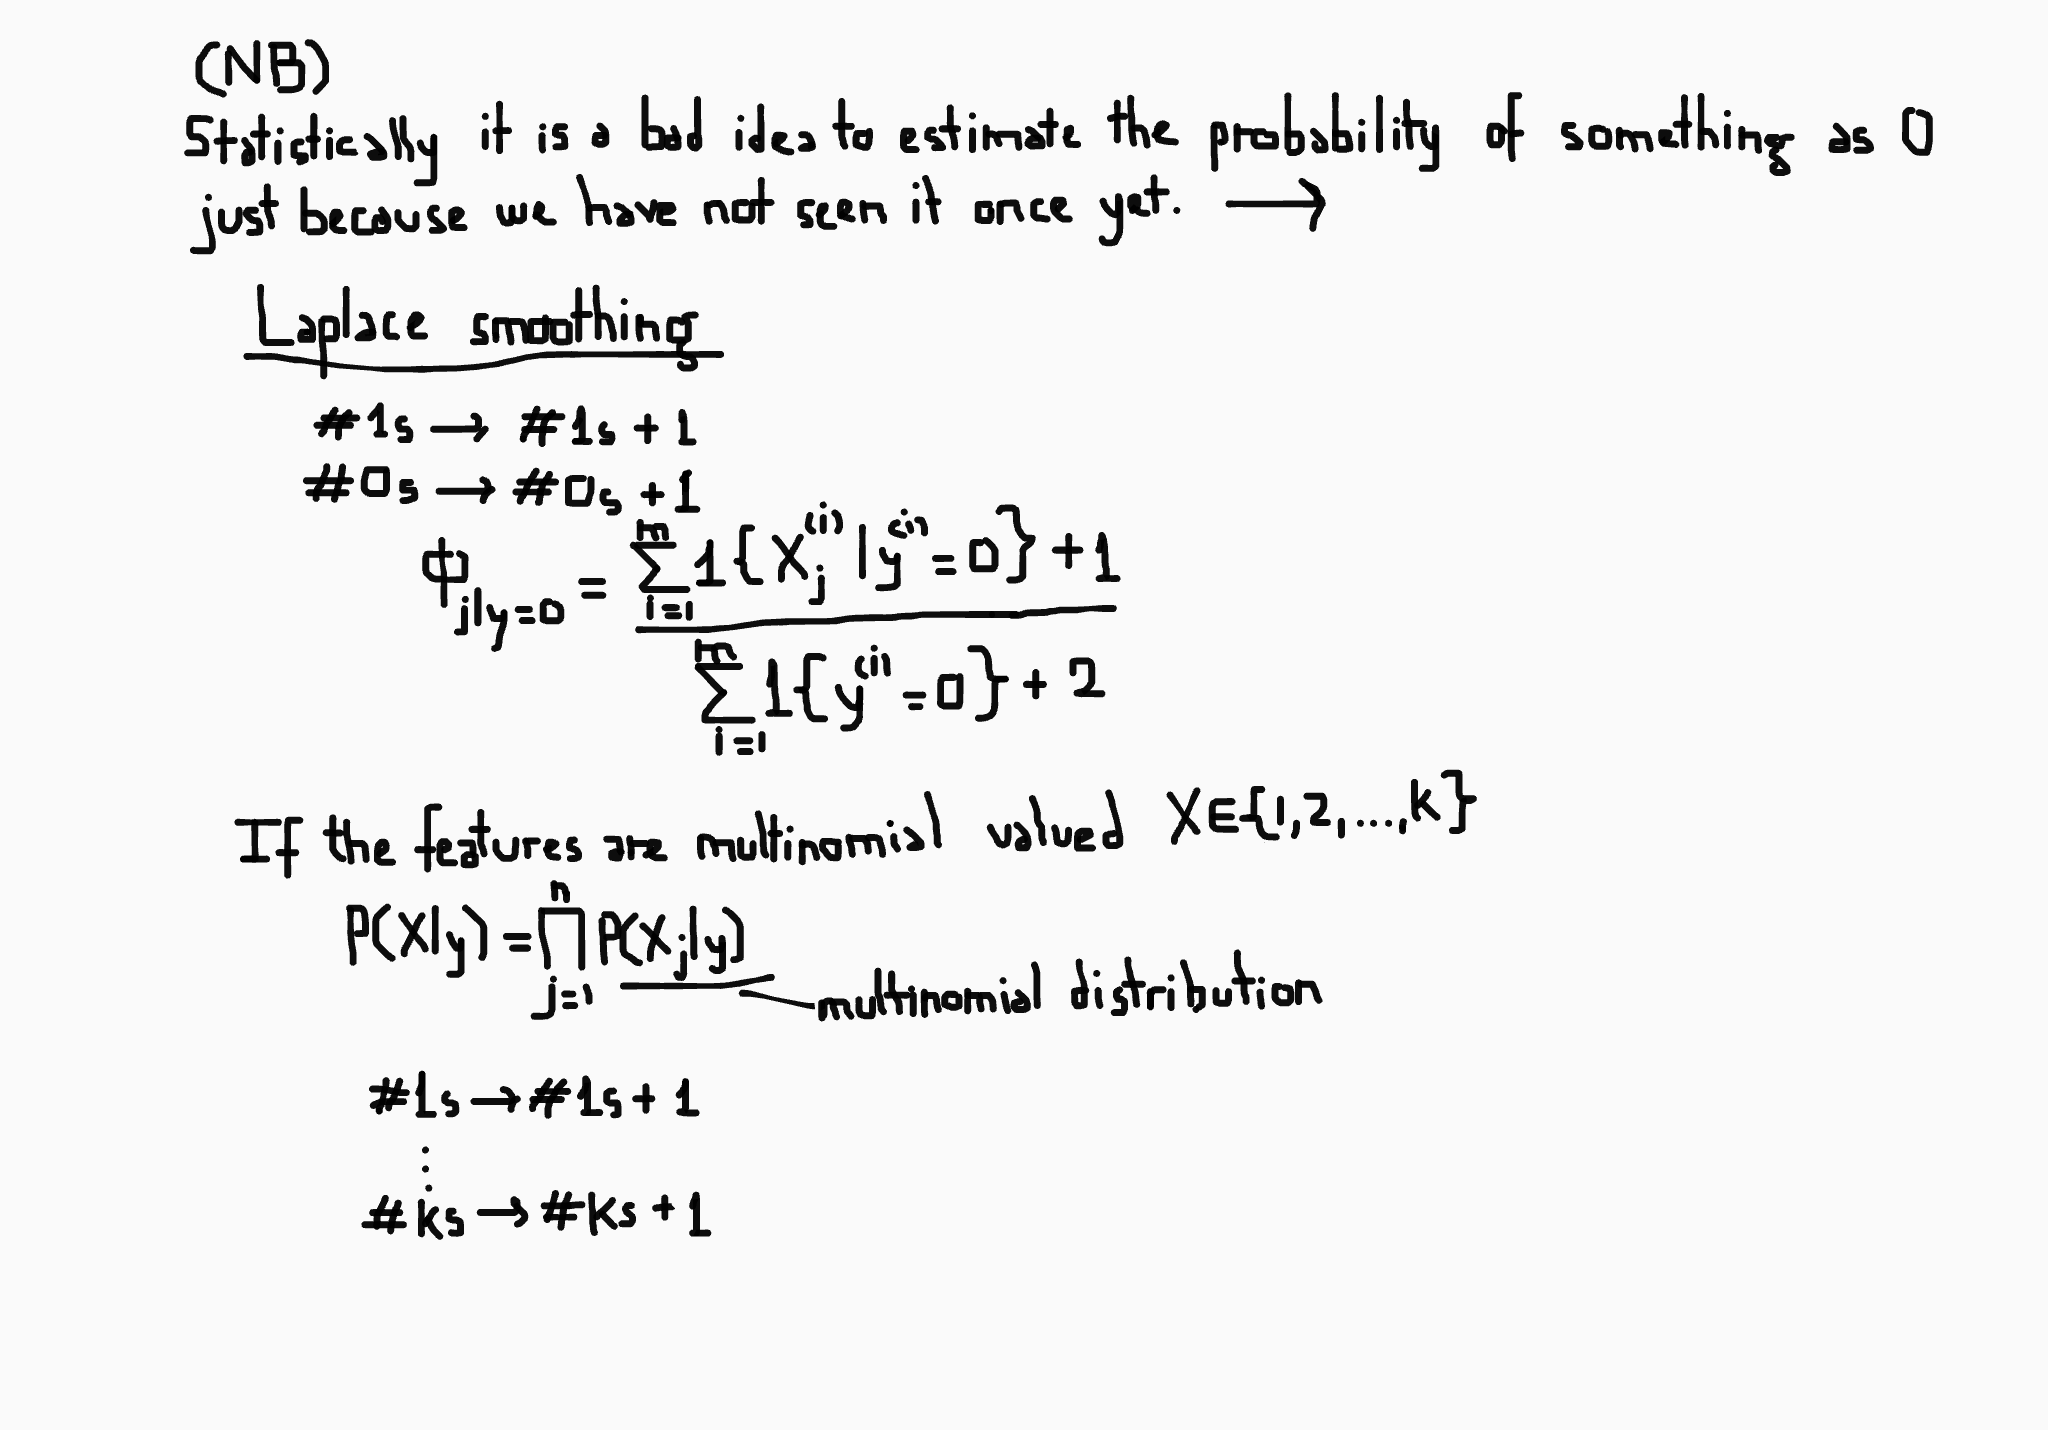 (NB)
Statistically it is a bad idea to estimate the probability of something as 0
just because we have not seen it once yet. ⟶
Laplace smoothing
#1s → #1s + 1
#0s → #0s + 1
ϕ_{j|y=0} = \frac{\sum_{i=1}^{m} 1\{X_j^{(i)} | y^{(i)} = 0\} + 1}{\sum_{i=1}^{m} 1\{y^{(i)} = 0\} + 2}
If the features are multinomial valued X∈{1,2,...,k}
P(X|y) = \prod_{j=1}^{n} P(X_j|y)
multinomial distribution
#1s → #1s + 1
⋮
#ks → #ks + 1